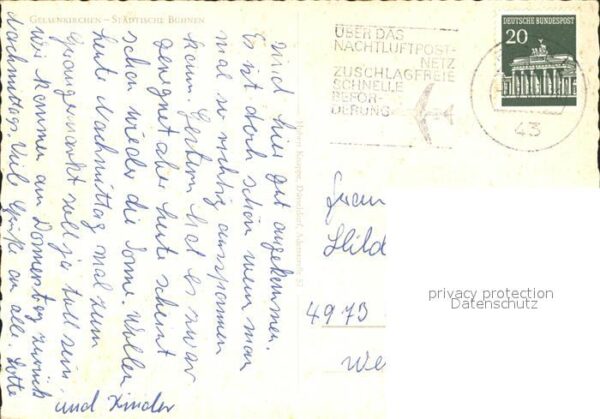 GELSENKIRCHEN – STÄDTISCHE BÜHNEN
sind hier gut angekommen.
Es ist doch schön wenn man
mal so richtig ausspannen
kann. Gestern hat es zwar
geregnet aber heute scheint
schon wieder die Sonne. Wollen
heute Nachmittag mal zum
soll ja toll sein.
Wir kommen am Donnerstag zurück
Nachmittag viele Grüße an alle Lotte
und Kinder
ÜBER DAS
NACHTLUFTPOST-
NETZ
ZUSCHLAGFREIE
SCHNELLE
BEFÖR-
DERUNG
DEUTSCHE BUNDESPOST
20
43
Frau
Hild
4973
We
privacy protection
Datenschutz